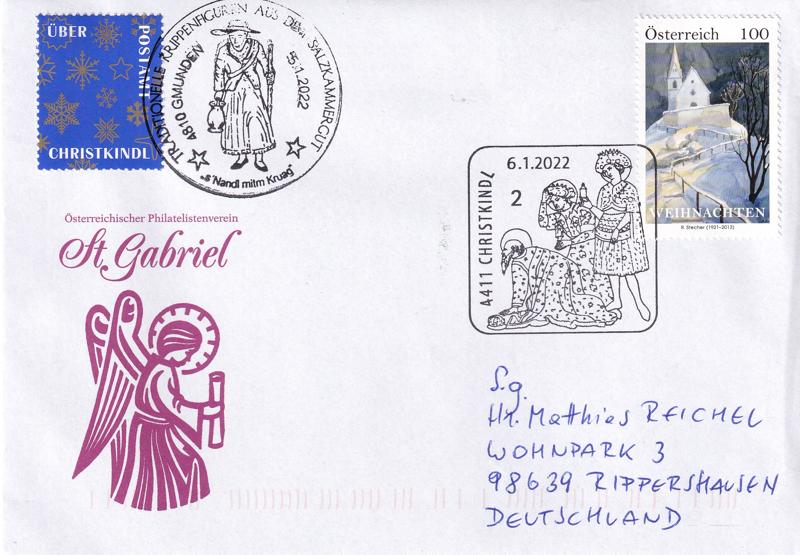 ÜBER
POSTAMT
CHRISTKINDL
TRADITIONELLE KRIPPENFIGUREN AUS DEM SALZKAMMERGUT
4810 GMUNDEN
5.1.2022
„s'Nandl mitm Kruag"
Österreich 100
WEIHNACHTEN
R. Stecher (1921–2013)
6.1.2022
2
4411 CHRISTKINDL
Österreichischer Philatelistenverein
St. Gabriel
S.g.
Hr. Matthias REICHEL
WOHNPARK 3
98639 RIPPERSHAUSEN
DEUTSCHLAND